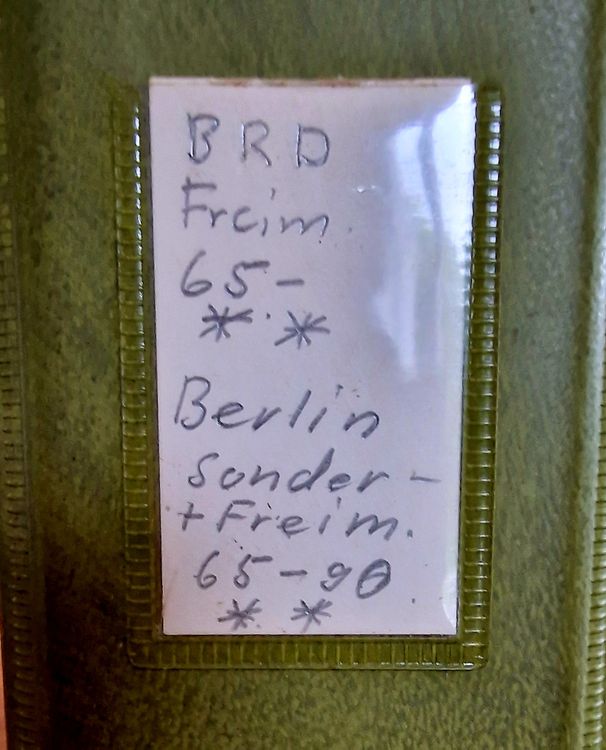 BRD
Freim.
65-
* *
Berlin
Sonder-
+Freim.
65-90
* *